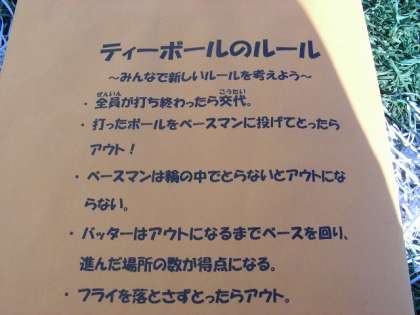 ティーボールのルール
～みんなで新しいルールを考えよう～
・全員が打ち終わったら交代。
・打ったボールをベースマンに投げてとったら
アウト！
・ベースマンは輪の中でとらないとアウトにな
らない。
・バッターはアウトになるまでベースを回り、
進んだ場所の数が得点になる。
・フライを落とさずとったらアウト。